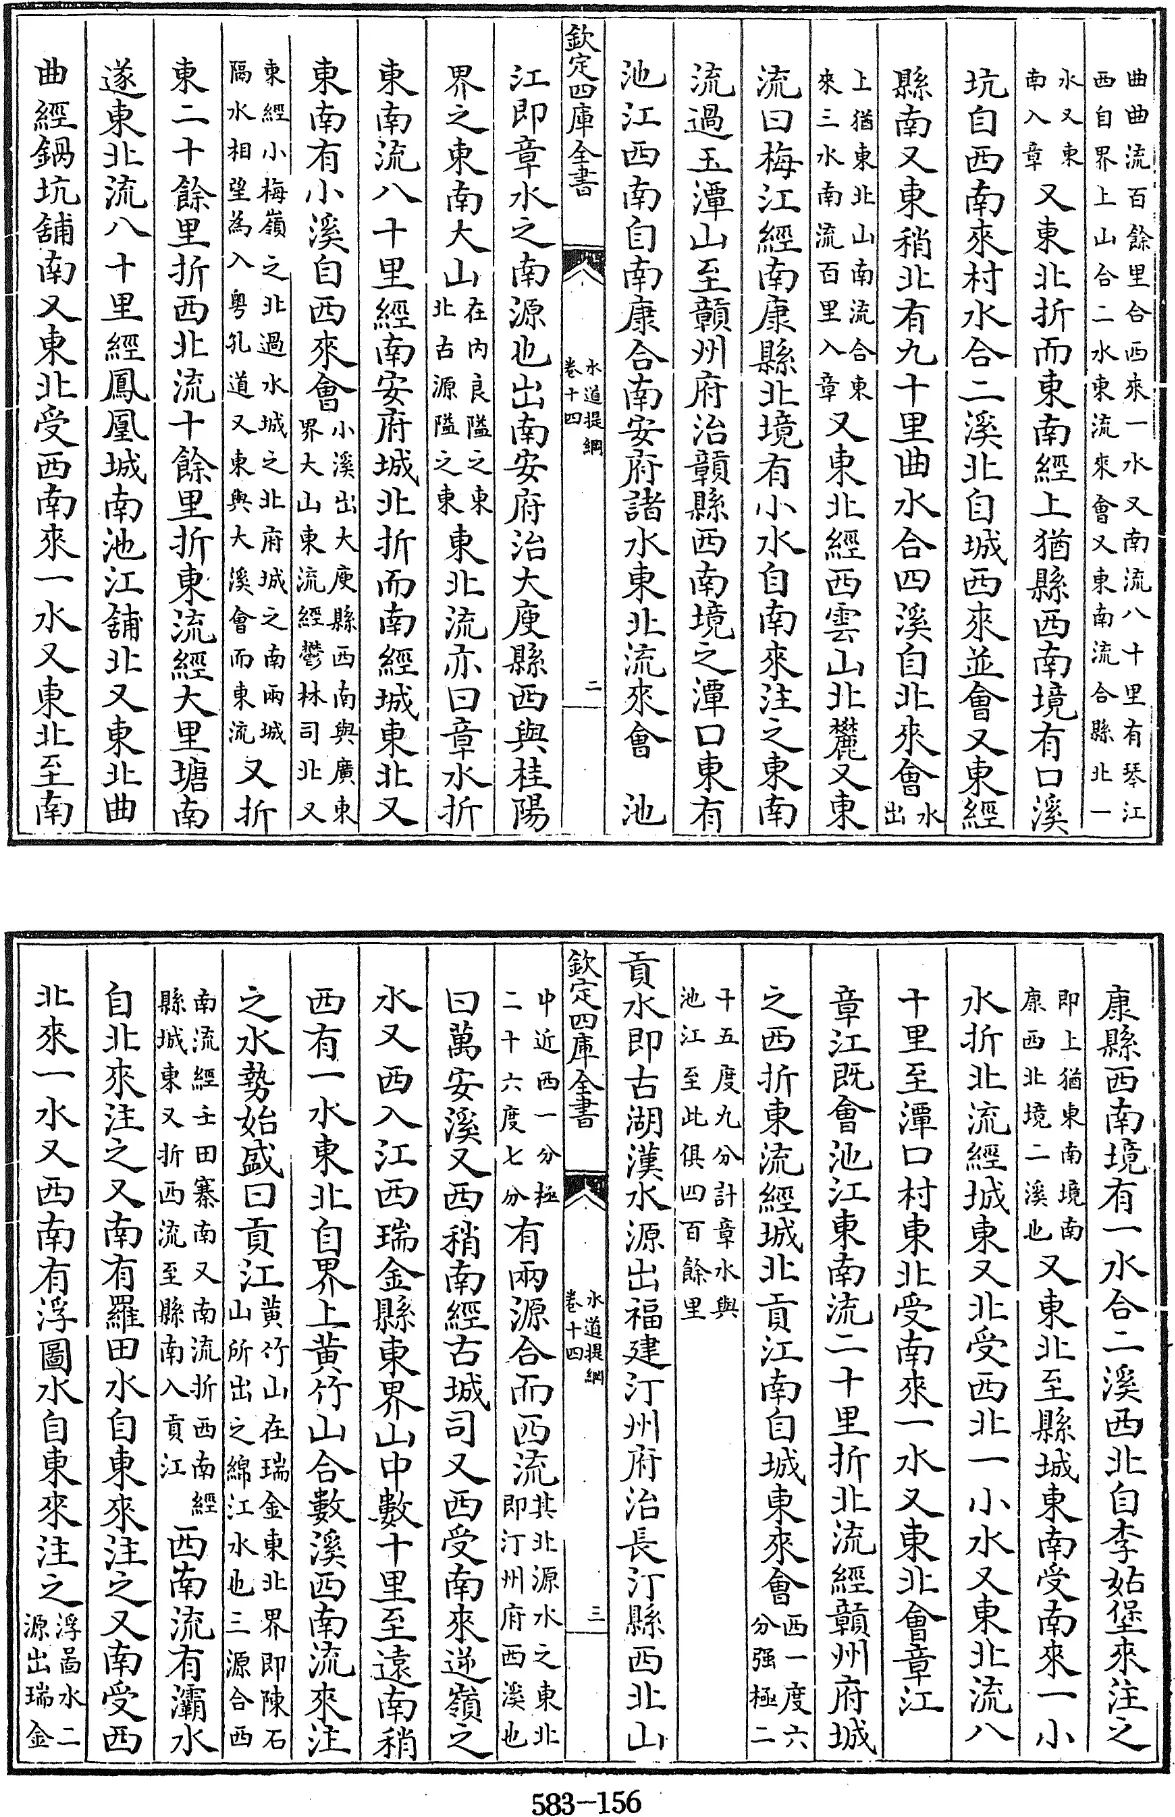 曲曲流百餘里合西來一水又南流八十里有琴江
西自界上山合二水東流來會又東南流合縣北一
水又東
南入章
又東北折而東南經上猶縣西南境有口溪
坑自西南來村水合二溪北自城西來並會又東經
縣南又東稍北有九十里曲水合四溪自北來會
水
出
上猶東北山南流合東
來三水南流百里入章
又東北經西雲山北麓又東
流曰梅江經南康縣北境有小水自南來注之東南
流過玉潭山至贛州府治贛縣西南境之潭口東有
池江西南自南康合南安府諸水東北流來會　池
欽定四庫全書
水道提綱
卷十四
二
江即章水之南源也出南安府治大庾縣西與桂陽
界之東南大山
在內良隘之東
北古源隘之東
東北流亦曰章水折
東南流八十里經南安府城北折而南經城東北又
東南有小溪自西來會
小溪出大庾縣西南與廣東
界大山東流經鬱林司北又
東經小梅嶺之北過水城之北府城之南兩城
隔水相望為入粵孔道又東與大溪會而東流
又折
東二十餘里折西北流十餘里折東流經大里塘南
遂東北流八十里經鳳凰城南池江舖北又東北曲
曲經鍋坑舖南又東北受西南來一水又東北至南
康縣西南境有一水合二溪西北自李姑堡來注之
即上猶東南境南
康西北境二溪也
又東北至縣城東南受南來一小
水折北流經城東又北受西北一小水又東北流八
十里至潭口村東北受南來一水又東北會章江
章江既會池江東南流二十里折北流經贛州府城
之西折東流經城北貢江南自城東來會
西一度六
分强極二
十五度九分計章水與
池江至此俱四百餘里
貢水即古湖漢水源出福建汀州府治長汀縣西北山
欽定四庫全書
水道提綱
卷十四
三
中近西一分極
二十六度七分
有兩源合而西流
其北源水之東北
即汀州府西溪也
曰萬安溪又西稍南經古城司又西受南來逆嶺之
水又西入江西瑞金縣東界山中數十里至遠南稍
西有一水東北自界上黃竹山合數溪西南流來注
之水勢始盛曰貢江
黃竹山在瑞金東北界即陳石
山所出之綿江水也三源合西
南流經壬田寨南又南流折西南經
縣城東又折西流至縣南入貢江
西南流有灞水
自北來注之又南有羅田水自東來注之又南受西
北來一水又西南有浮圖水自東來注之
浮啚水二
源出瑞金
583—156